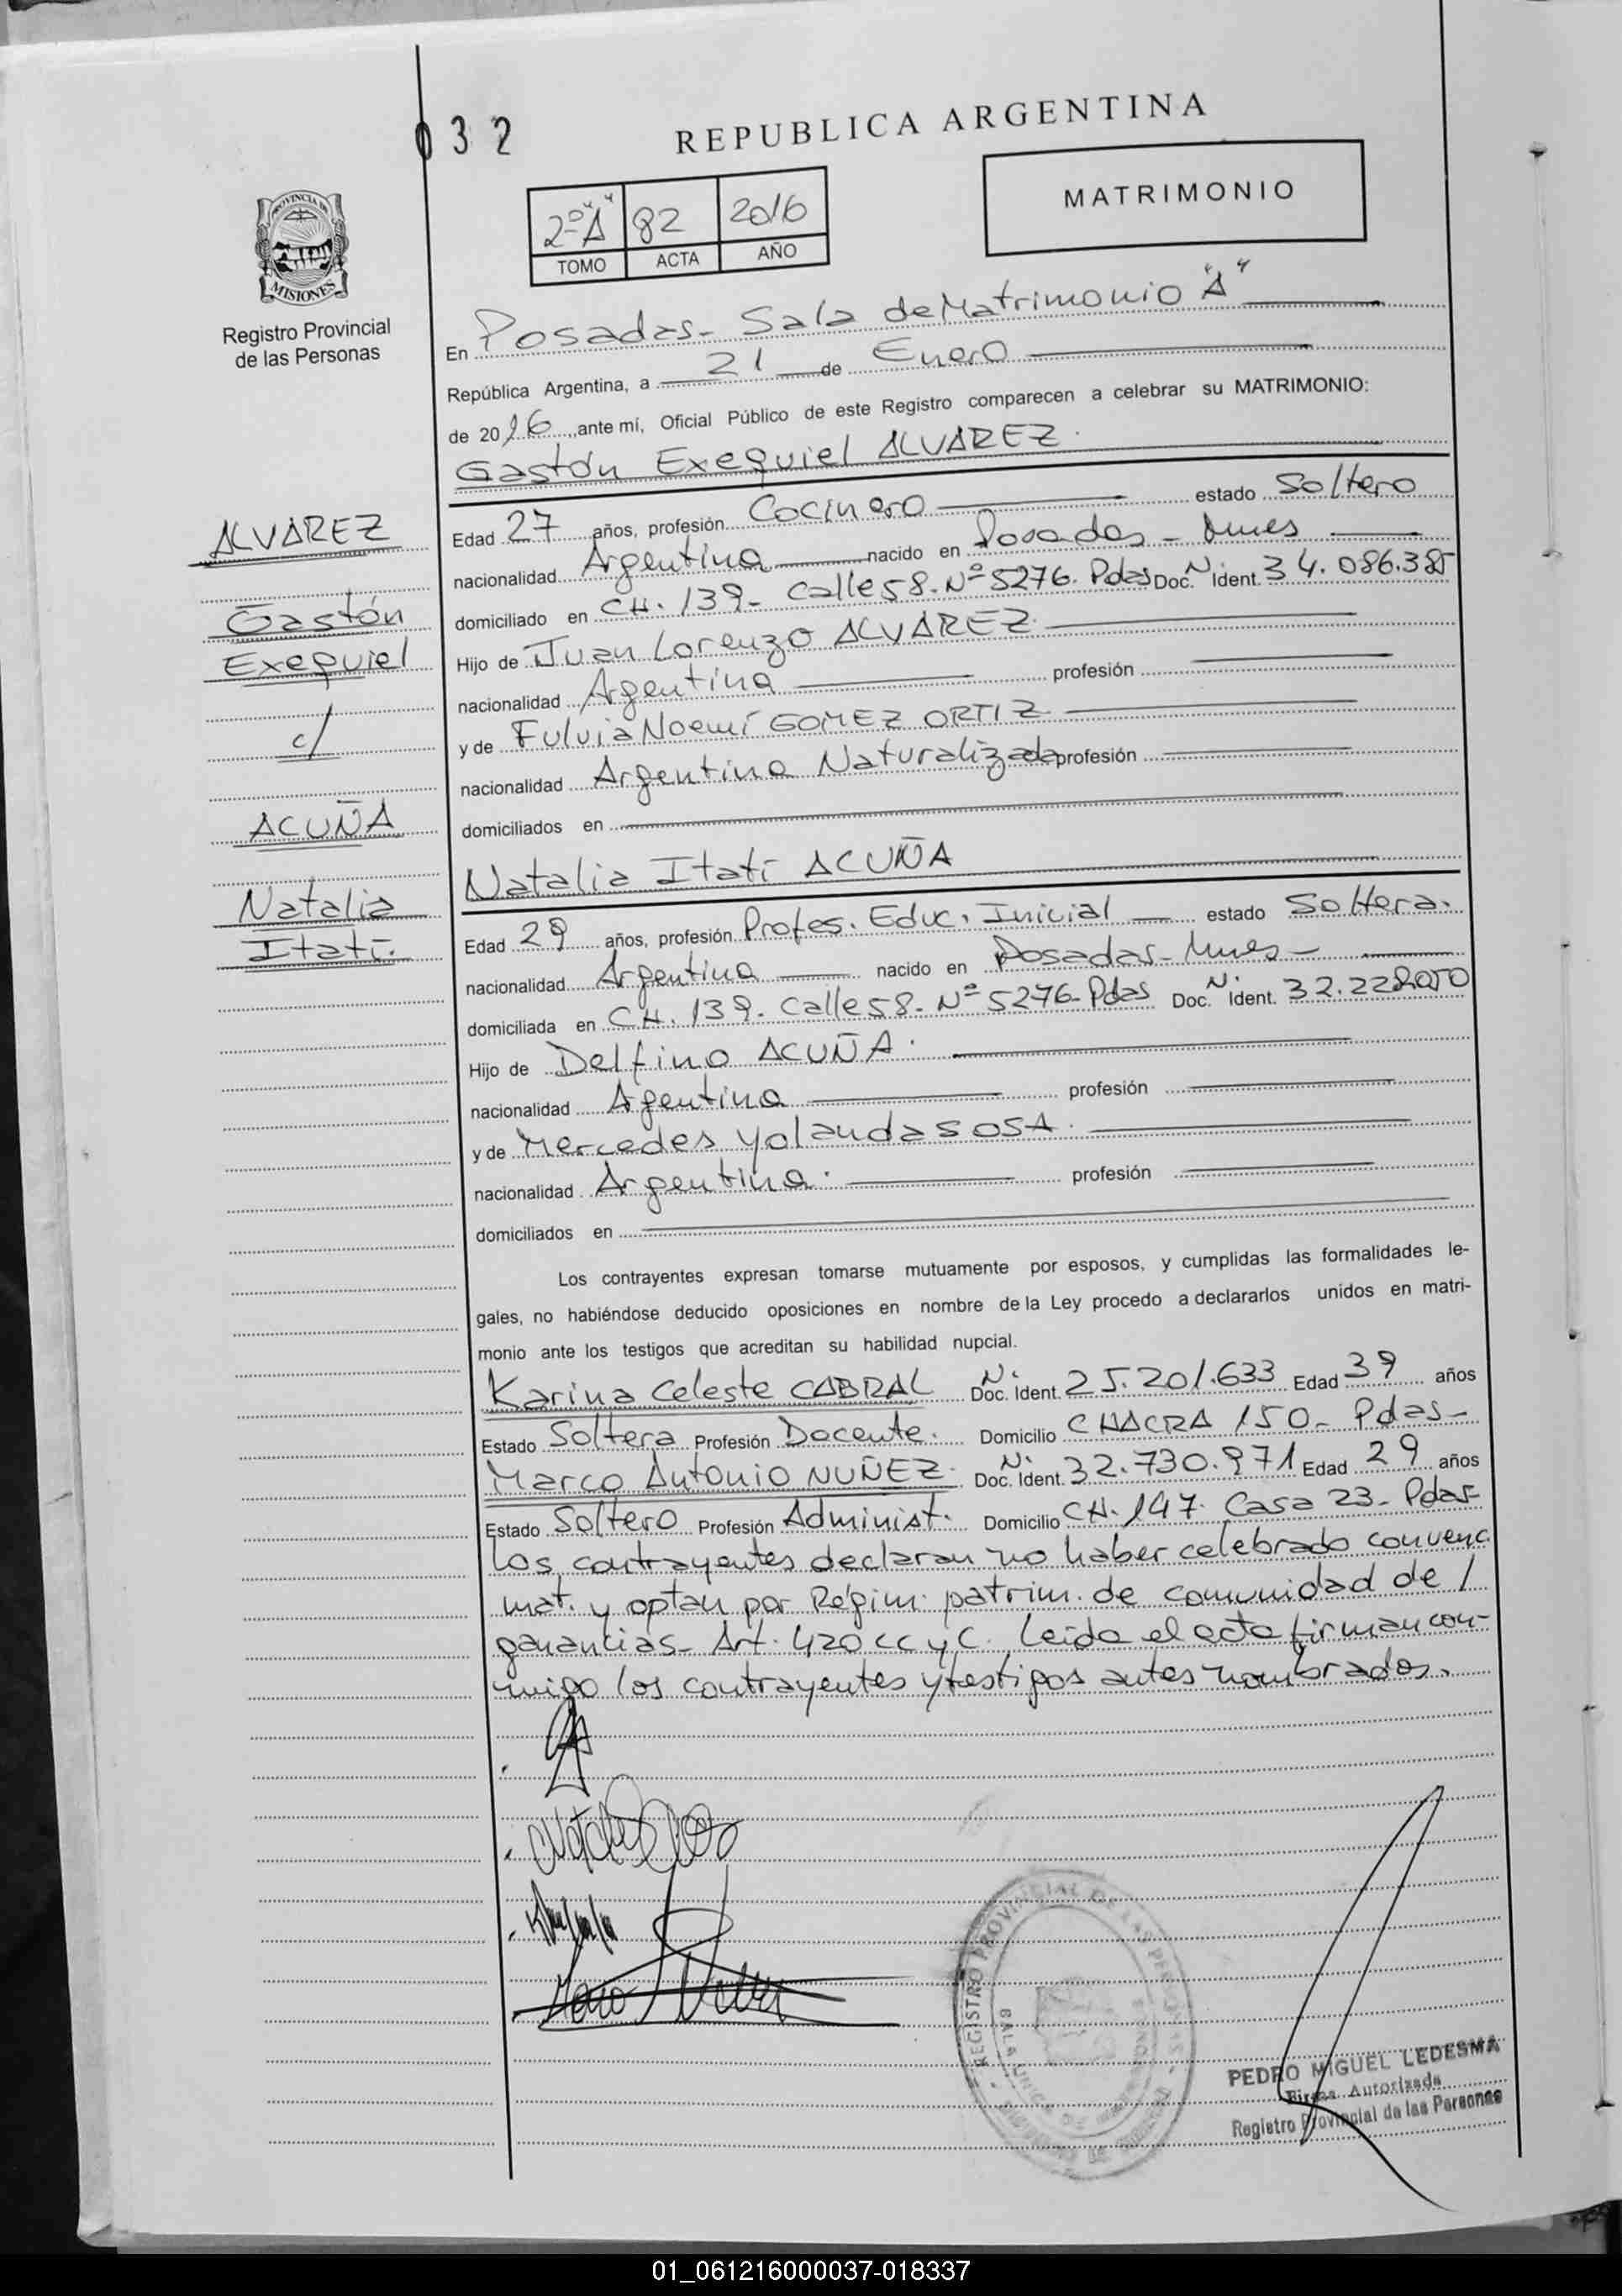 032
REPUBLICA ARGENTINA
2º "A" 82 2016
TOMO ACTA AÑO
MATRIMONIO
PROVINCIA DE
MISIONES
Registro Provincial
de las Personas
En Posadas - Sala de Matrimonio "A"
República Argentina, a 21 de Enero
de 2016, ante mí, Oficial Público de este Registro comparecen a celebrar su MATRIMONIO:
Gastón Exequiel ALVAREZ.
ALVAREZ
Gastón
Exequiel
c/
ACUÑA
Natalia
Itatí.
Edad 27 años, profesión Cocinero estado Soltero
nacionalidad Argentina nacido en Posadas - Mnes
domiciliado en CH. 139 - Calle 58 - Nº 5276. Pdas Doc. N. Ident. 34.086.385
Hijo de Juan Lorenzo ALVAREZ
nacionalidad Argentina profesión
y de Fulvia Noemí GOMEZ ORTIZ
nacionalidad Argentina Naturalizada profesión
domiciliados en
Natalia Itatí ACUÑA
Edad 29 años, profesión Profes. Educ. Inicial estado Soltera.
nacionalidad Argentina nacido en Posadas - Mnes -
domiciliada en CH. 139 - Calle 58 - Nº 5276 - Pdas Doc. N. Ident.
Hijo de Delfino ACUÑA.
nacionalidad Argentina profesión
y de Mercedes Yolanda SOSA.
nacionalidad Argentina. profesión
domiciliados en
Los contrayentes expresan tomarse mutuamente por esposos, y cumplidas las formalidades le-
gales, no habiéndose deducido oposiciones en nombre de la Ley procedo a declararlos unidos en matri-
monio ante los testigos que acreditan su habilidad nupcial.
Karina Celeste CABRAL Doc. N. Ident. 25.201.633 Edad 39 años
Estado Soltera Profesión Docente. Domicilio CHACRA 150 - Pdas -
Marco Antonio NUÑEZ. Doc. N. Ident. 32.730.971 Edad 29 años
Estado Soltero Profesión Administ. Domicilio CH. 147. Casa 23 - Pdas-
Los contrayentes declaran no haber celebrado convenc
mat. y optan por Régim. patrim. de comunidad de /
ganancias - Art. 420 CC y C. Leida el acta firman con-
migo los contrayentes y testigos antes nombrados.
REGISTRO PROVINCIAL DE LAS PERSONAS
PEDRO MIGUEL LEDESMA
Firma Autorizada
Registro Provincial de las Personas
01_061216000037-018337